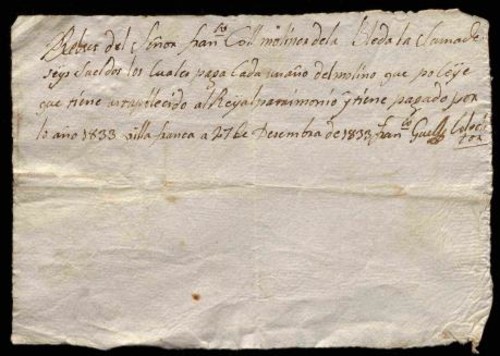 Rebut del Señor fran.co Coll molinero dela Bleda la Suma de
seys sueldos los cuales paga cada un año del molino que poseye
que tiene estapblecido al Reyal patrimonio y tiene pagado por
lo año 1833 villa franca a 27 de Desembra de 1833 fran.co Guell Colec
tor